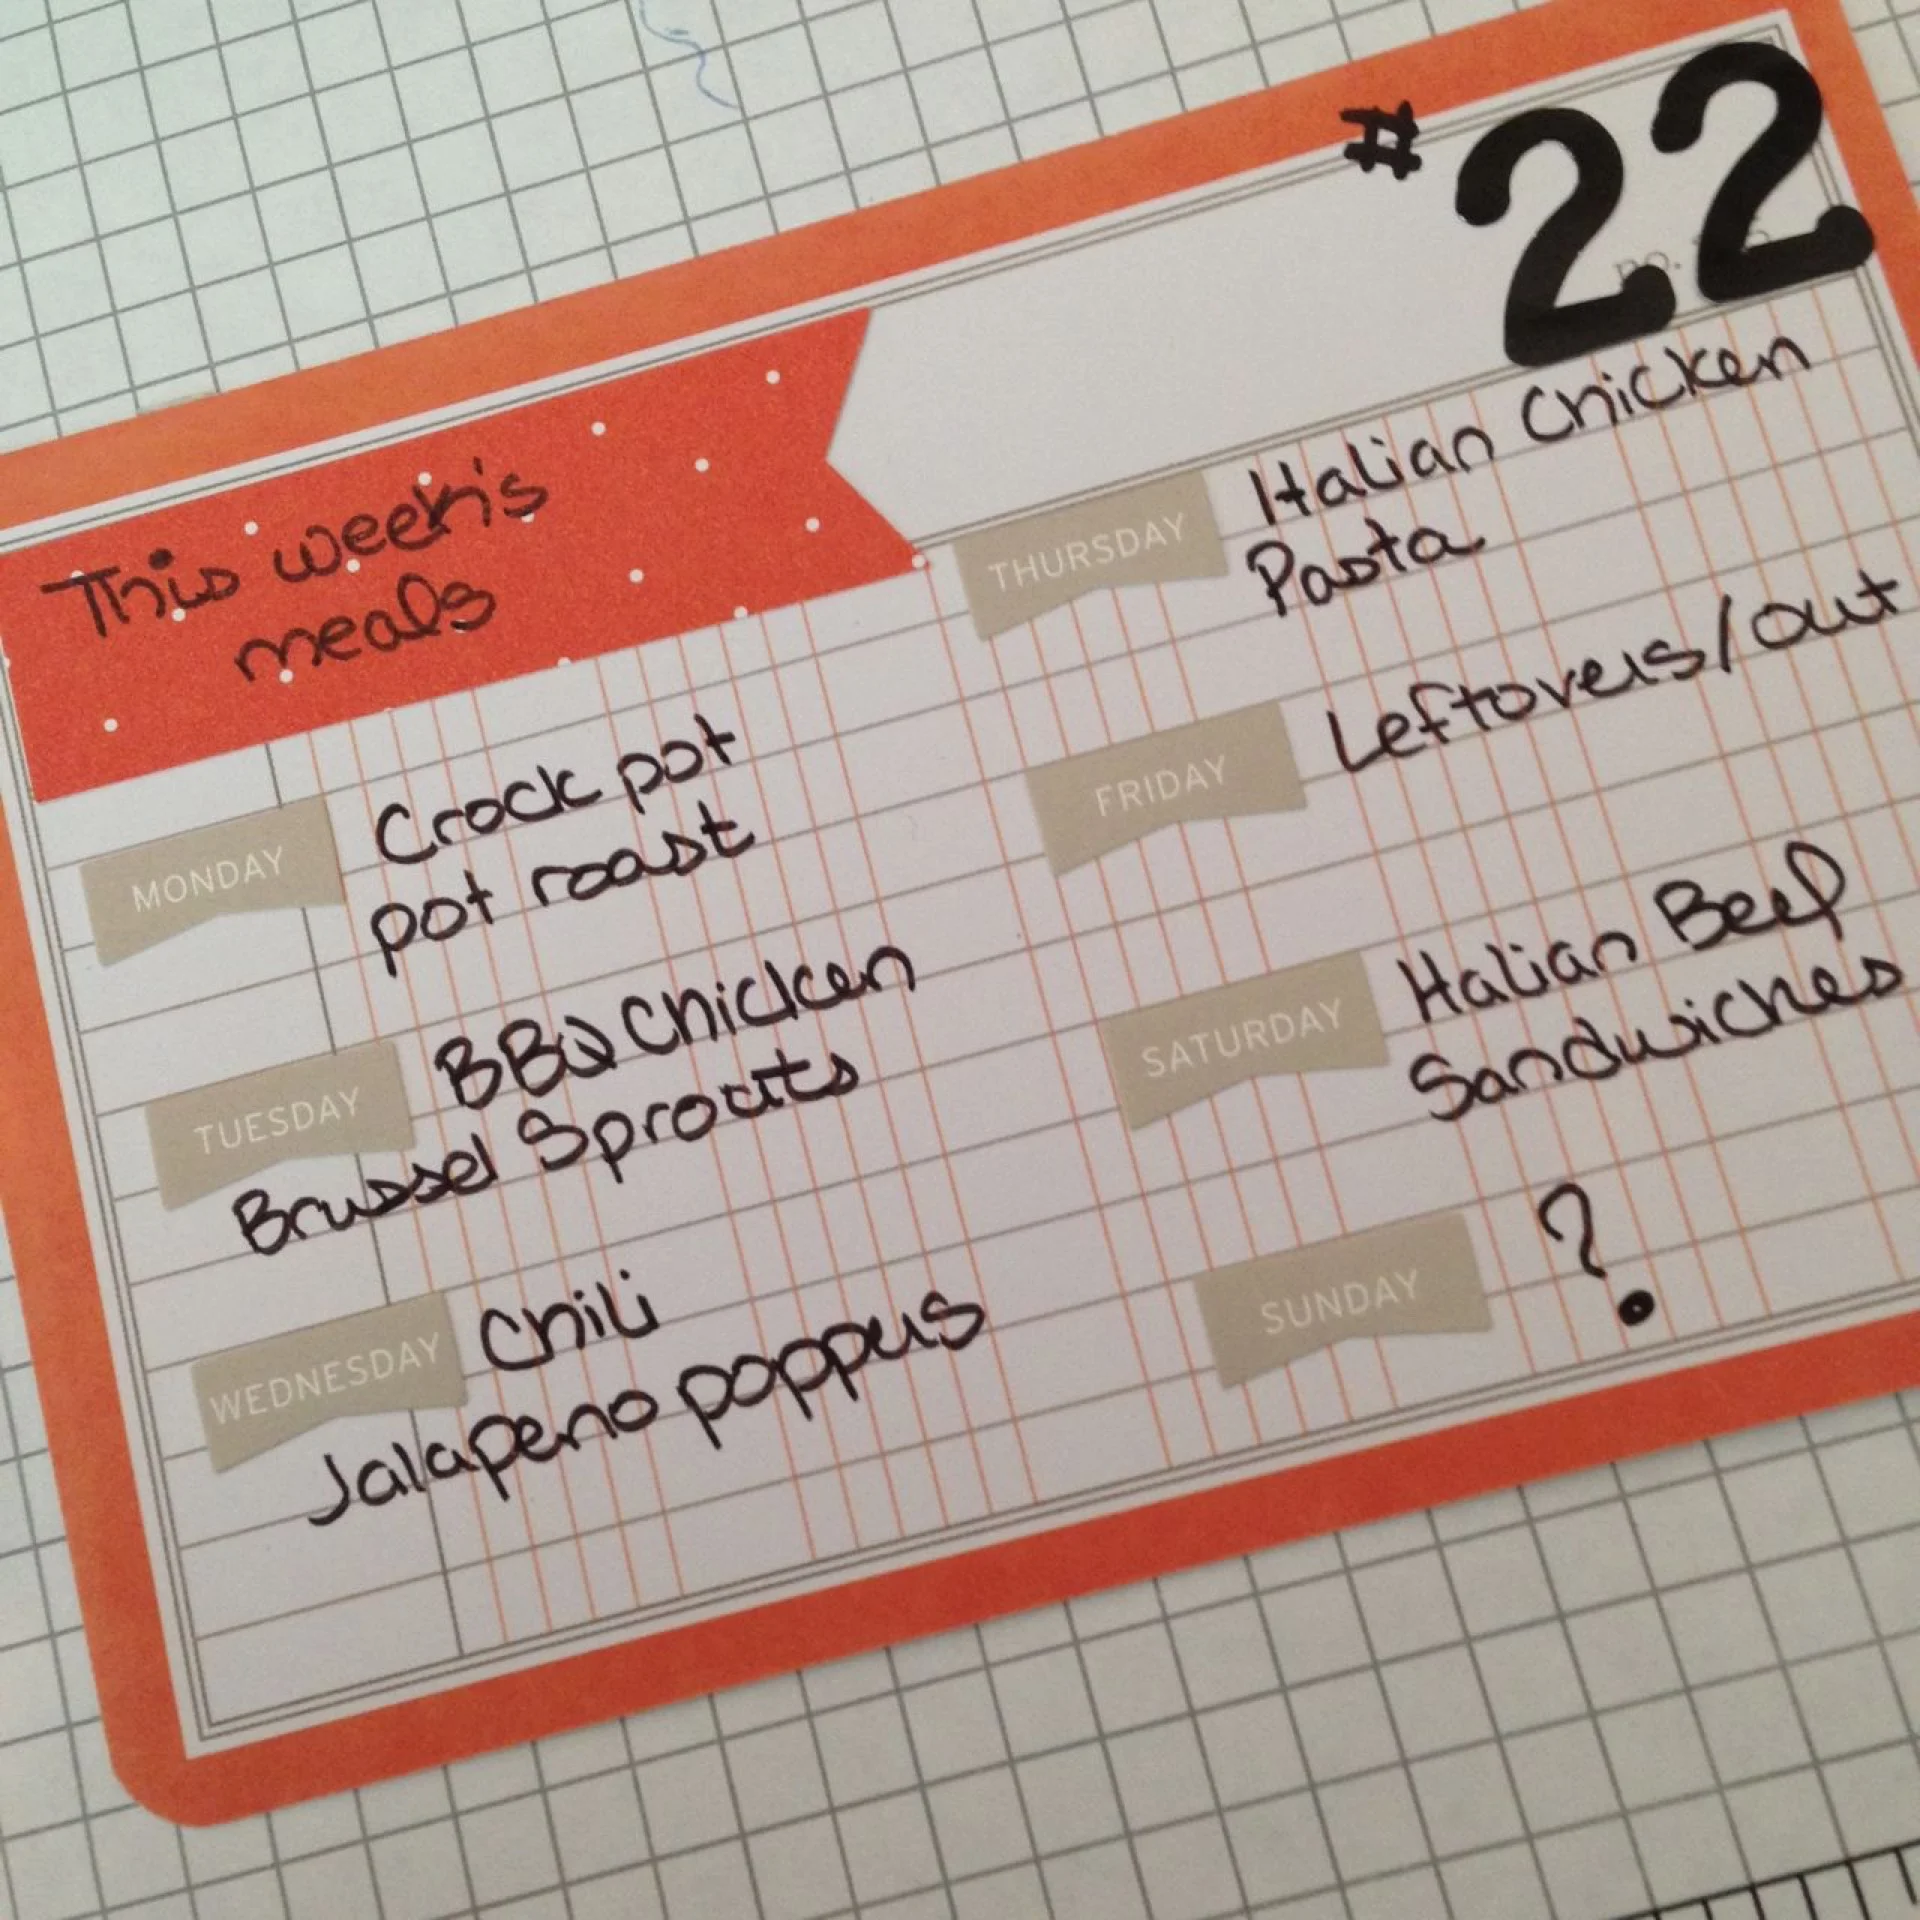 #22
This week's
meals
MONDAY
Crock pot
pot roast
TUESDAY
BBQ Chicken
Brussel Sprouts
WEDNESDAY
Chili
Jalapeno poppers
THURSDAY
Italian Chicken
Pasta
FRIDAY
Leftovers/out
SATURDAY
Italian Beef
Sandwiches
SUNDAY
?